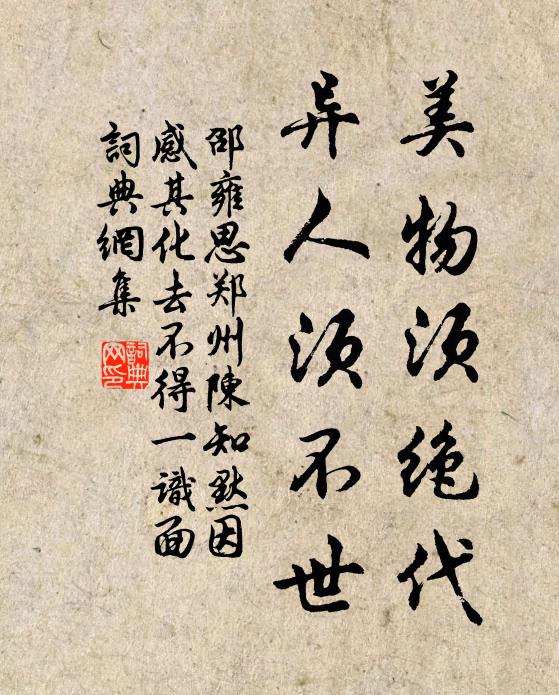 美物须绝代
异人须不世
邵雍思郑州陳知默因
感其化去不得一識面
詞典網集
詞典
网印